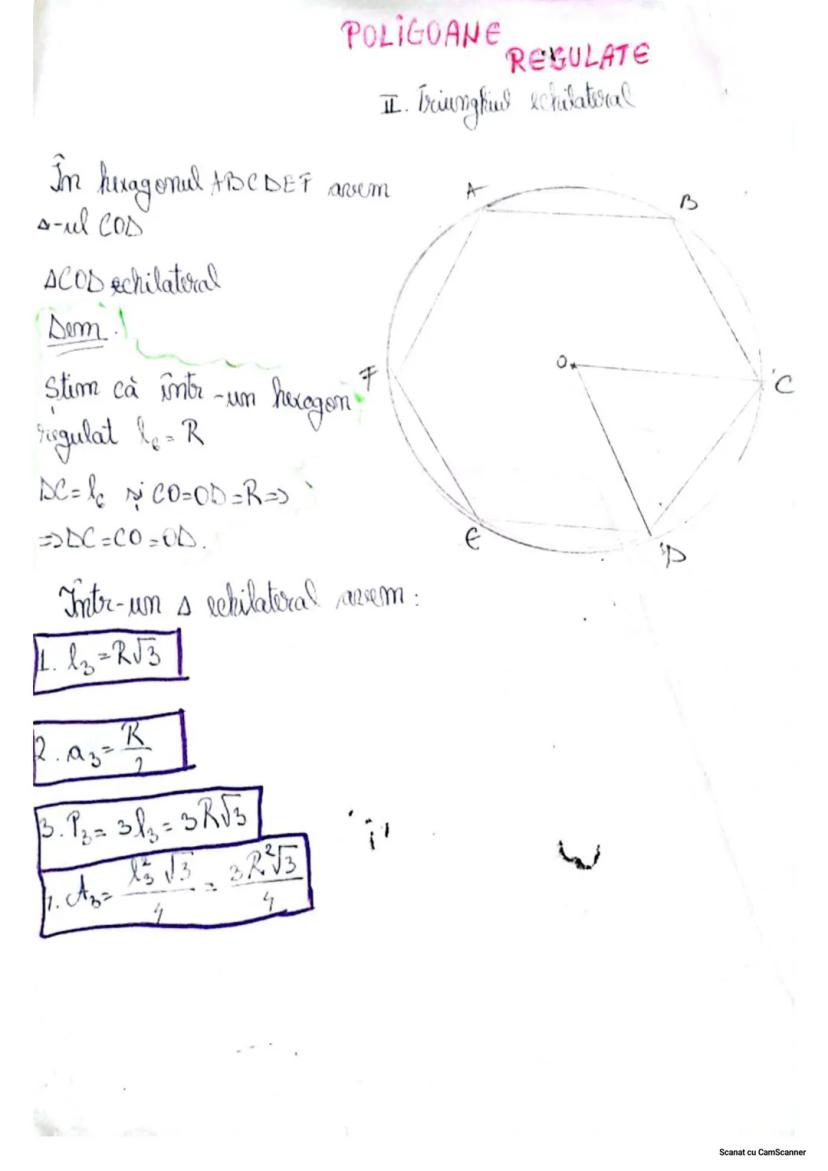 POLIGOANE
REGULATE
II. Triunghiul echilateral
În hexagonul ABCDEF avem
Δ-ul COD
ΔCOD echilateral
Dem.
Știm că într-un hexagon
regulat l₆ = R
DC = l₆ și CO=OD=R=>
=> DC=CO=OD.
Într-un Δ echilateral avem:
1. l₃=R√3
2. a₃= R/2
3. P₃= 3l₃ = 3R√3
A₃= l₃²√3/4 = 3R²√3/4
A
B
C
D
E
F
O
Scanat cu CamScanner